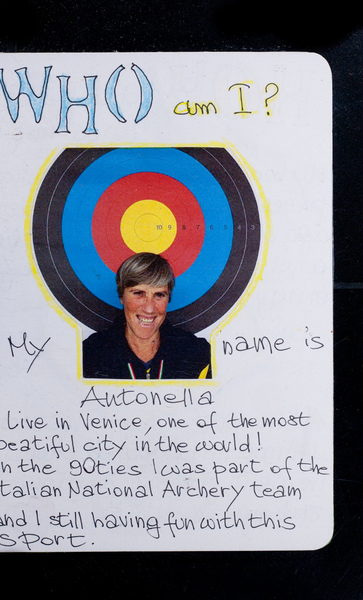 WHO am I?
10 9 8 7 6 5 4 3
My name is
Antonella
Live in Venice, one of the most
beatiful city in the would!
n the 90ties I was part of the
talian National Archery team
and I still having fun with this
sport.